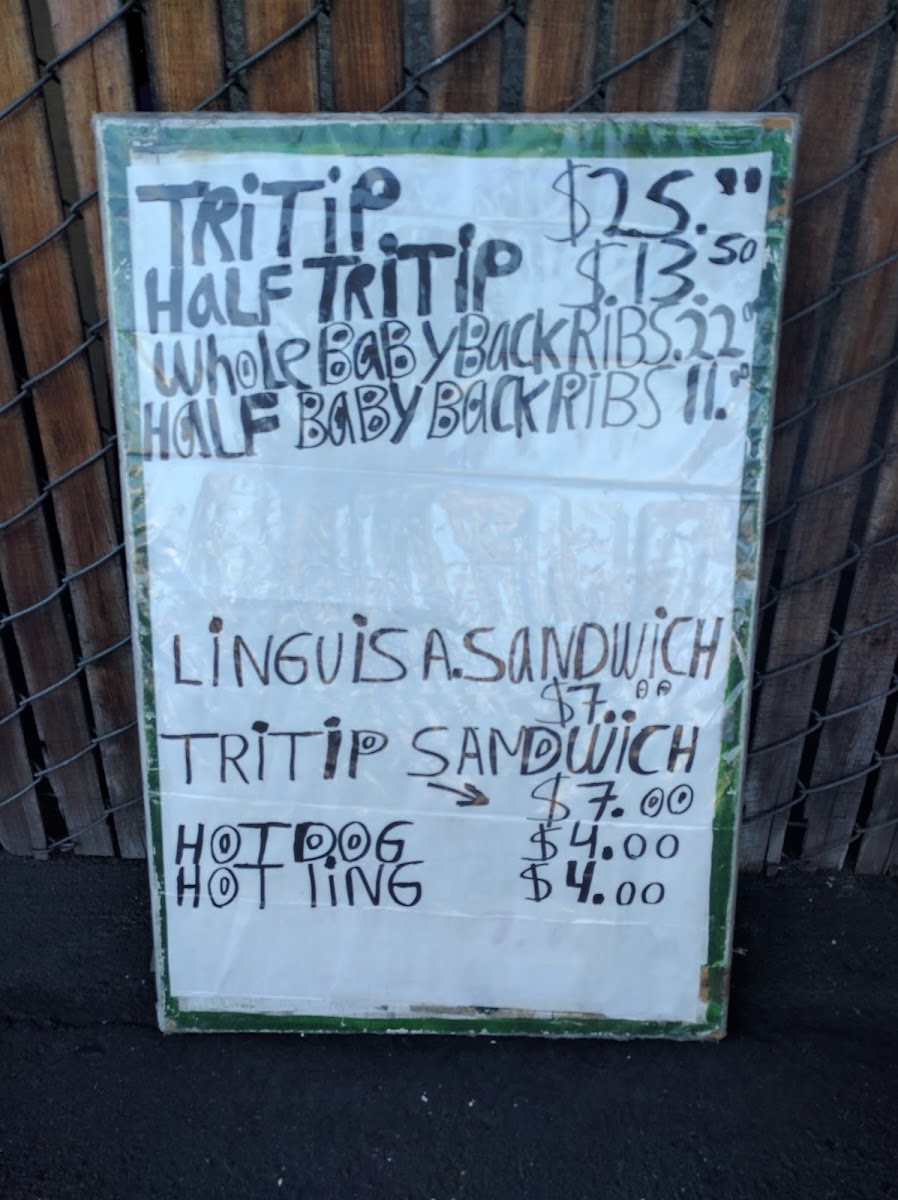 TRiTiP $25.00
HALF TRiTiP $.13.50
WhOLe BABY BACK RiBS.22"
HALF BABY BACK RiBS 11."
LiNGUiS A.SANDWiCH
$7.00
TRiTiP SANDWiCH
→ $7.00
HOT DOG $4.00
HOT liNG $4.00